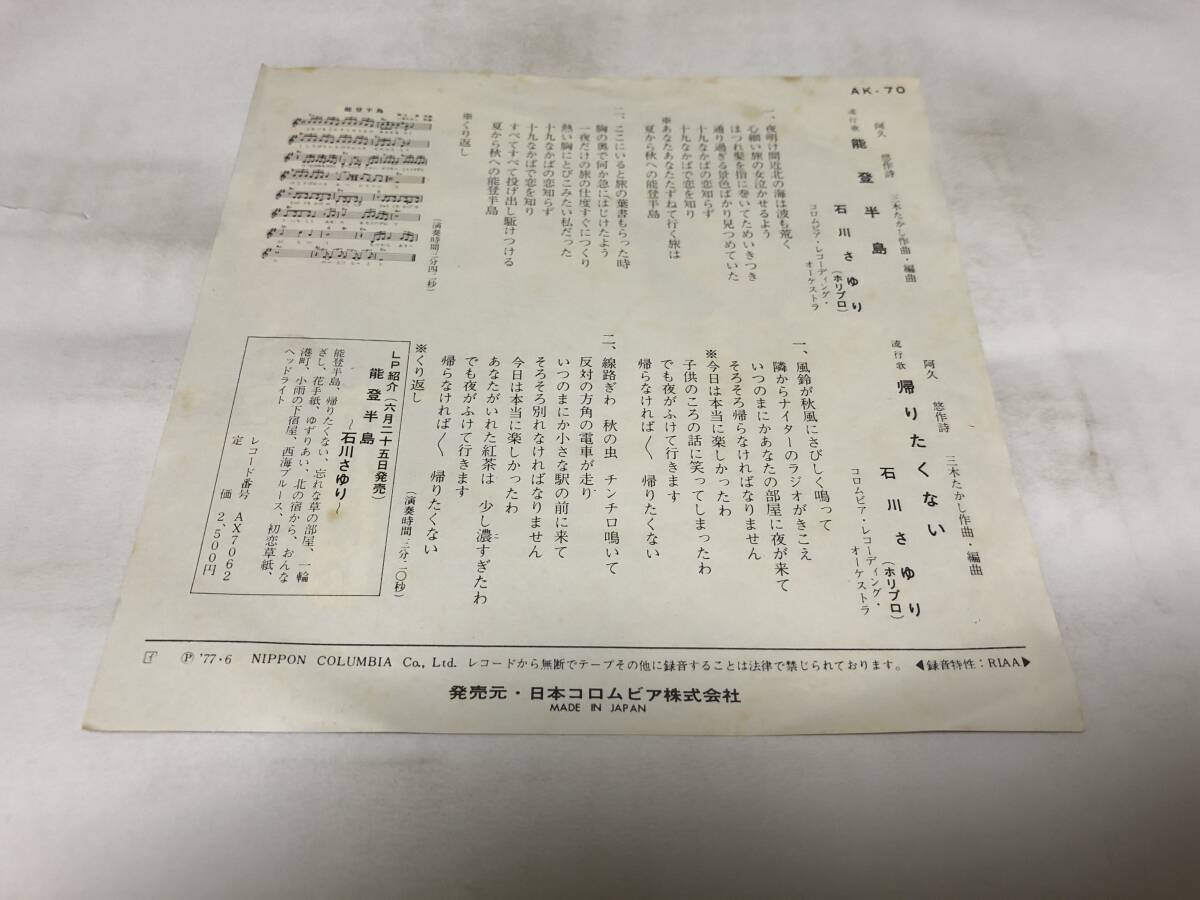 AK-70
阿久 悠作詩 三木たかし作曲・編曲
流行歌 能登半島
石川さゆり(ホリプロ)
コロムビア・レコーディング・オーケストラ
一、夜明け間近北の海は波も荒く
心細い旅の女泣かせるよう
ほつれ髪を指に巻いてためいきつき
通り過ぎる景色ばかり見つめていた
十九なかばの恋知らず
十九なかばで恋を知り
※あなたあなたたずねて行く旅は
夏から秋への能登半島
二、ここにいると旅の葉書もらった時
胸の奥で何か急にはじけたよう
一夜だけの旅の仕度すぐにつくり
熱い胸にとびこみたい私だった
十九なかばの恋知らず
十九なかばで恋を知り
すべてすべて投げ出し駈けつける
夏から秋への能登半島
※くり返し
(演奏時間三分四二秒)
能登半島
阿久 悠作詩 三木たかし作曲・編曲
流行歌 帰りたくない
石川さゆり(ホリプロ)
コロムビア・レコーディング・オーケストラ
一、風鈴が秋風にさびしく鳴って
隣からナイターのラジオがきこえ
いつのまにかあなたの部屋に夜が来て
そろそろ帰らなければなりません
※今日は本当に楽しかったわ
子供のころの話に笑ってしまったわ
でも夜がふけて行きます
帰らなければ〱 帰りたくない
二、線路ぎわ 秋の虫 チンチロ鳴いて
反対の方角の電車が走り
いつのまにか小さな駅の前に来て
そろそろ別れなければなりません
今日は本当に楽しかったわ
あなたがいれた紅茶は 少し濃すぎたわ
でも夜がふけて行きます
帰らなければ〱 帰りたくない
※くり返し
(演奏時間三分二〇秒)
LP紹介(六月二十五日発売)
能登半島
～石川さゆり～
能登半島、帰りたくない、忘れな草の部屋、一輪
ざし、花手紙、ゆずりあい、北の宿から、おんな
港町、小雨の下宿屋、西海ブルース、初恋草紙、
ヘッドライト
レコード番号 AX7062
定価 2,500円
℗ '77・6 NIPPON COLUMBIA Co., Ltd. レコードから無断でテープその他に録音することは法律で禁じられております。 ◀録音特性：RIAA▶
発売元・日本コロムビア株式会社
MADE IN JAPAN